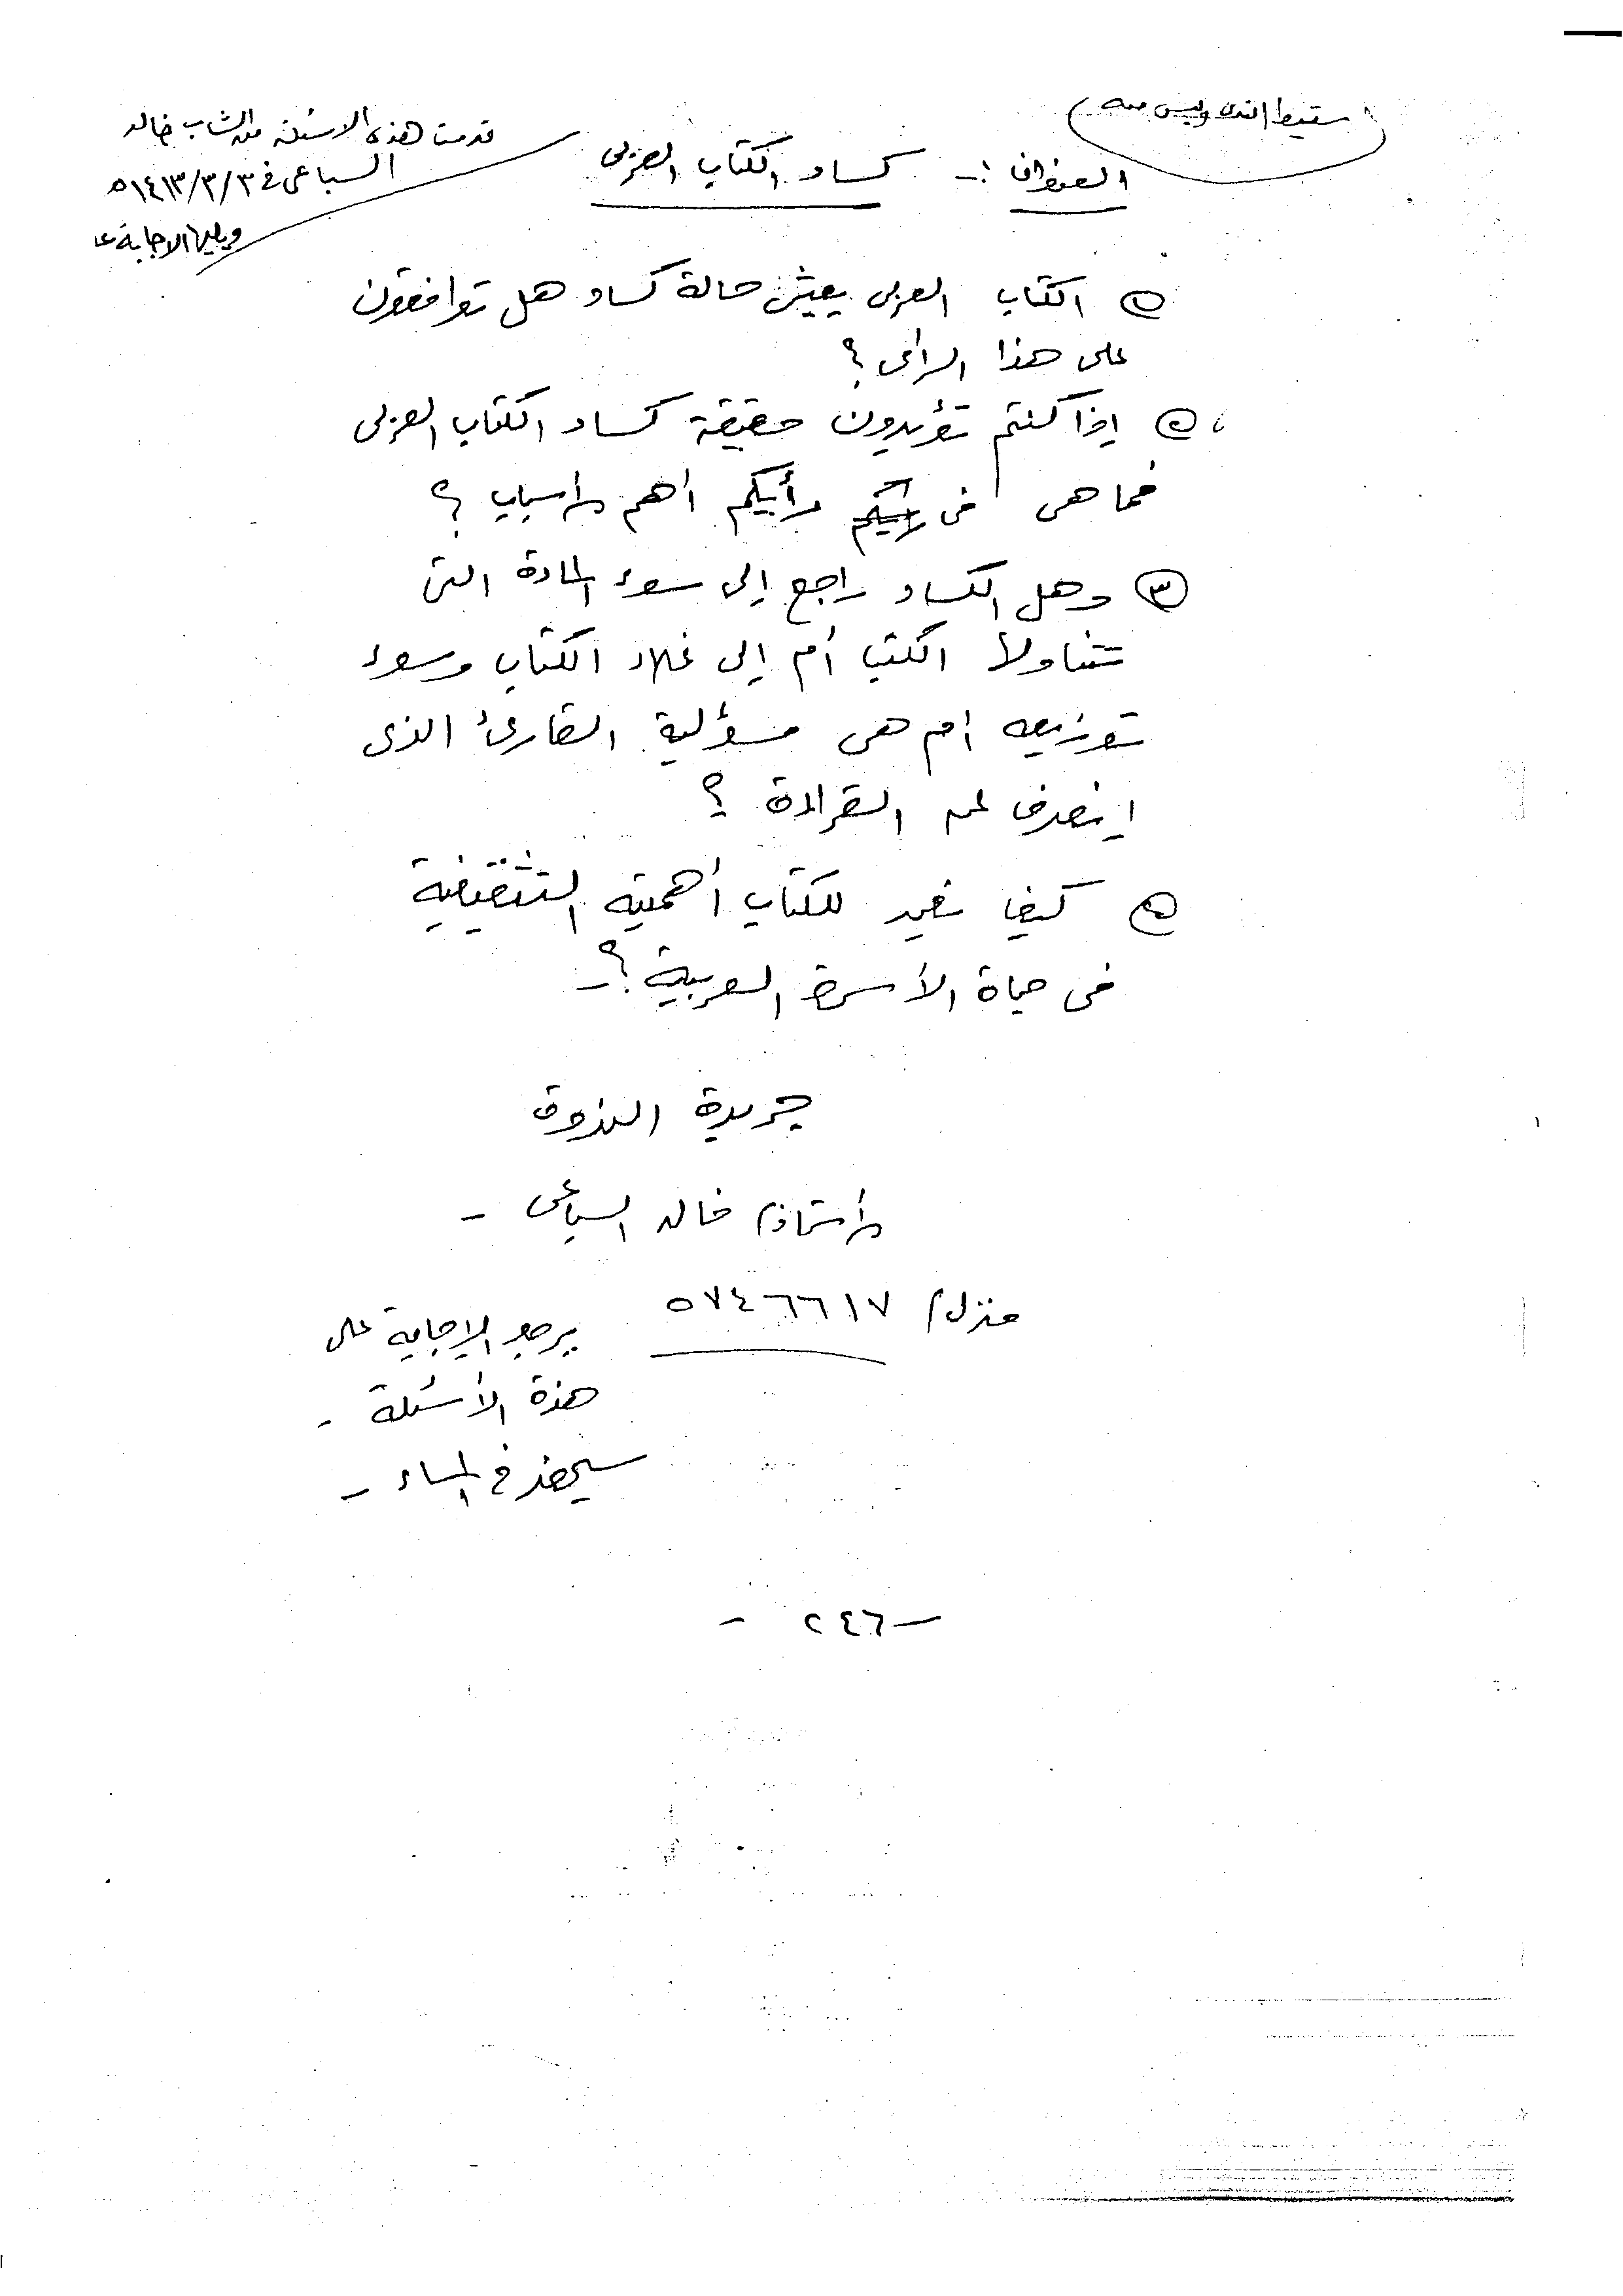 سقيط الندى وليس منه
قدمت هذه الاسئلة من الشاب خالد
السباعى فى ١٤١٣/٣/٣ه
ويليها الاجابة
العنوان :- كساد الكتاب العربى
① الكتاب العربى يعيش حالة كساد هل توافقون
على هذا الرأى ؟
② إذا كنتم تؤيدون حقيقة كساد الكتاب العربى
فما هى فى رأيكم أهم الأسباب ؟
③ وهل الكساد راجع إلى سوء المادة التى
تتناولها الكتب أم إلى غلاء الكتاب وسوء
توزيعه أم هى مسؤلية القارئ الذى
انصرف عن القراءة ؟
④ كيف نعيد للكتاب أهميته التثقيفية
فى حياة الأسرة العربية ؟ -
جريدة الندوة
الأستاذ/ خالد السباعى -
منزل/ ٥٧٤٦٦١٧
يرجو الإجابة على
هذة الأسئلة -
سيحضر فى المساء -
- ٢٤٦ -